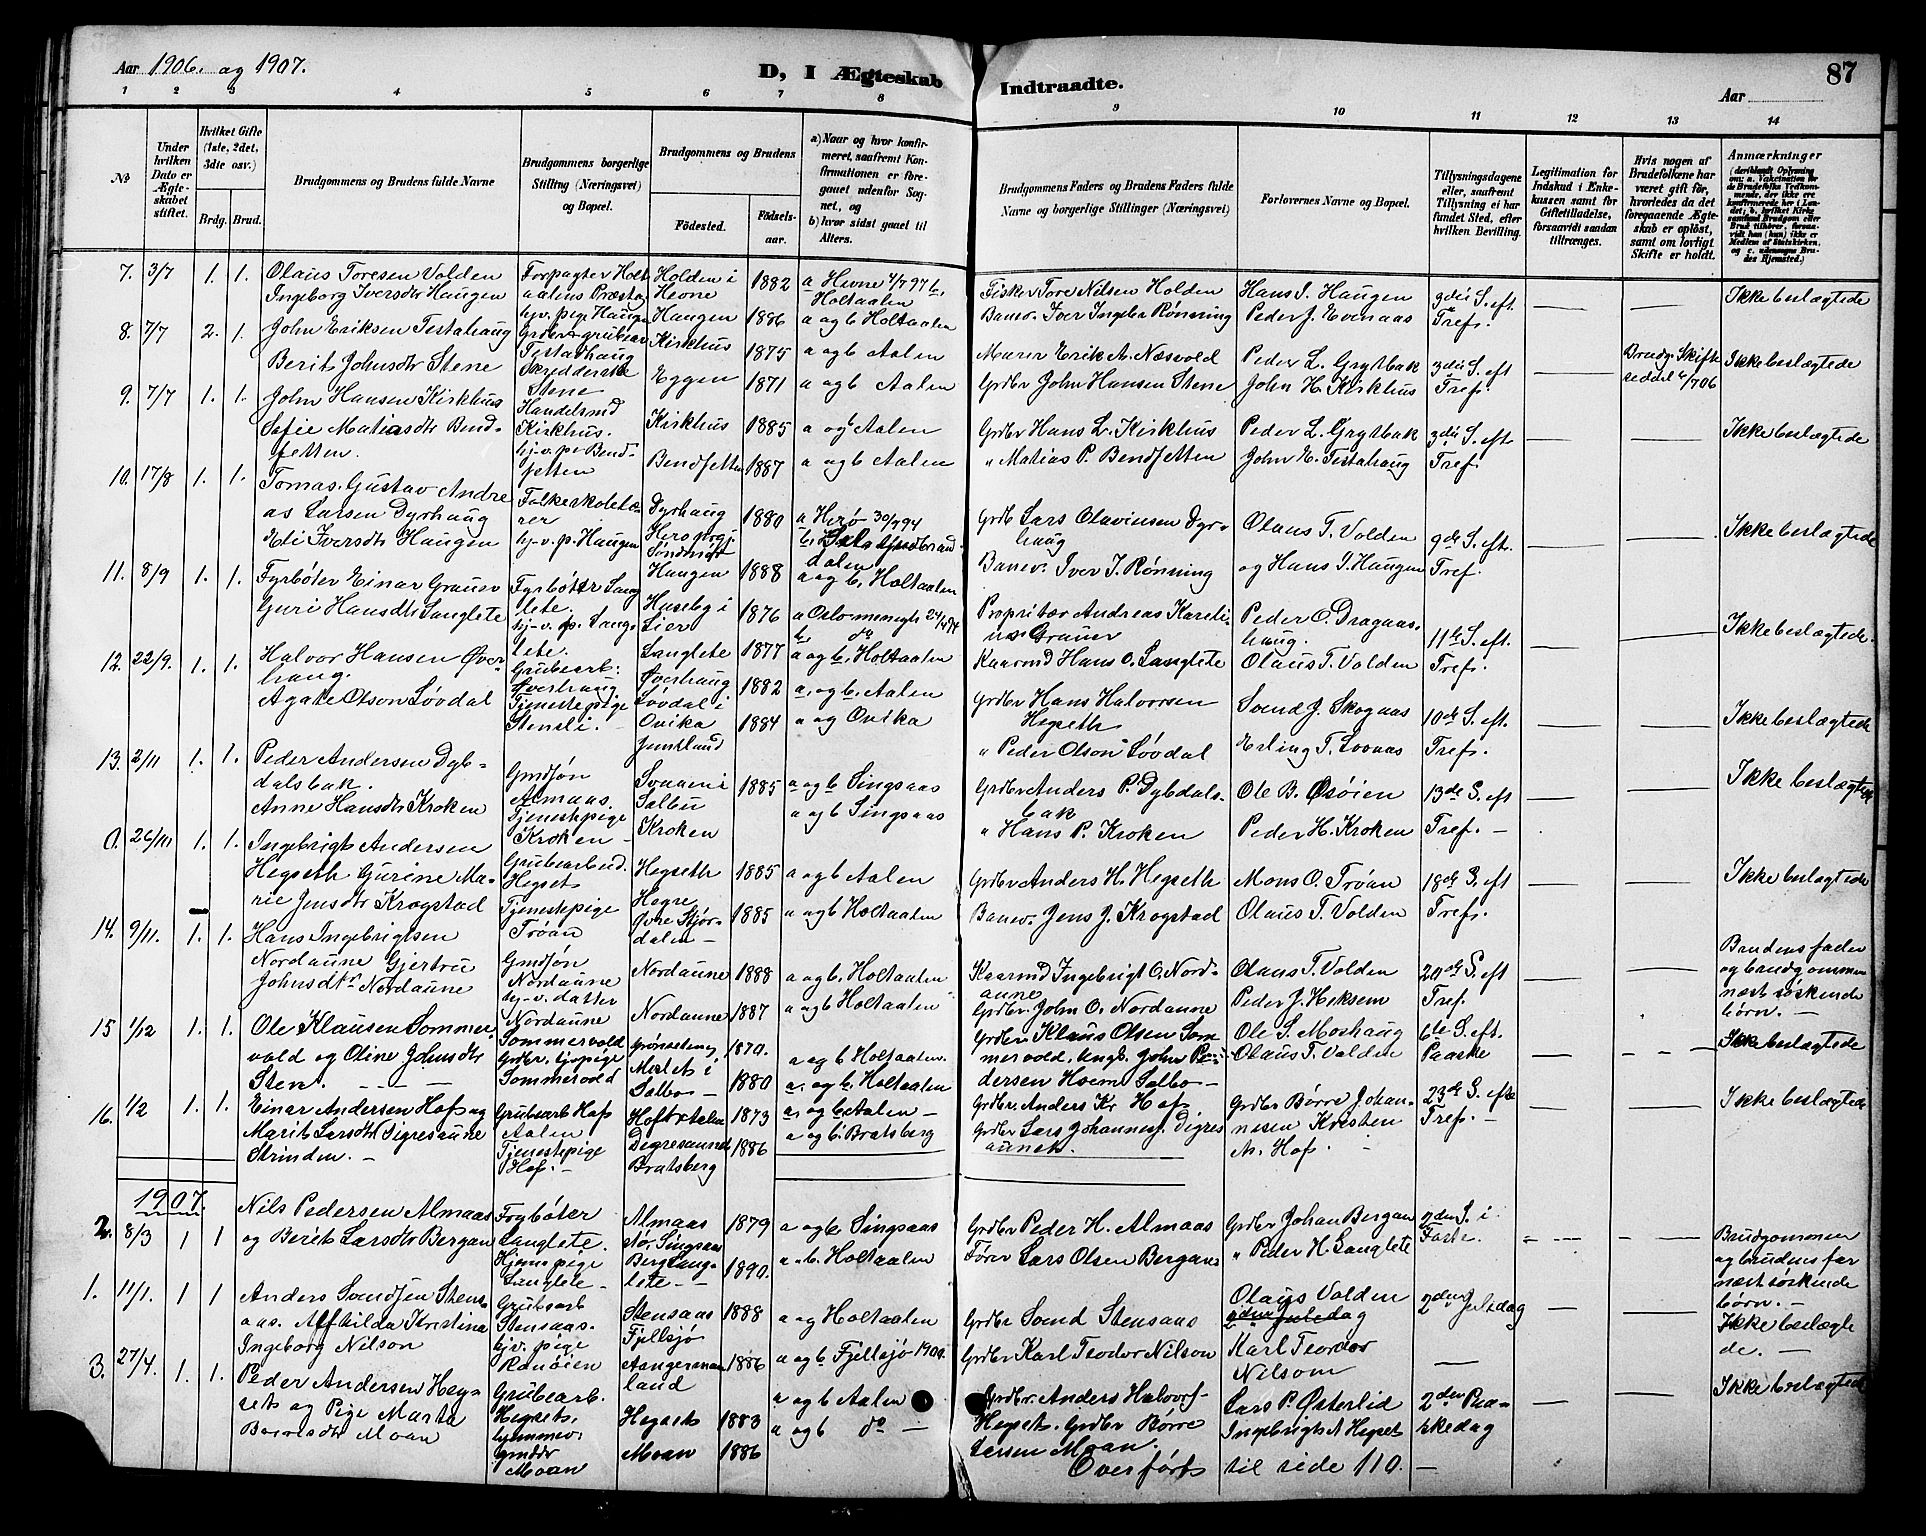 Aar 1906. og 1907.
D, I Ægteskab Indtraadte.
Aar
87
1 2 3 4 5 6 7 8 9 10 11 12 13 14
No
Under hvilken Dato er Ægteskabet stiftet.
Hvilket Gifte (1ste, 2det, 3die osv.)
Brdg. Brud.
Brudgommens og Brudens fulde Navne
Brudgommens borgerlige Stilling (Næringsvei) og Bopæl.
Brudgommens og Brudens
Fødested. Fødselsaar.
a) Naar og hvor konfirmeret, saafremt Konfirmationen er foregaaet udenfor Sognet, og
b) hvor sidst gaaet til Alters.
Brudgommens Faders og Brudens Faders fulde Navne og borgerlige Stillinger (Næringsvei)
Forlovernes Navne og Bopæl.
Tillysningsdagene eller, saafremt Tillysning ei har fundet Sted, efter hvilken Bevilling.
Legitimation for Indskud i Enkekassen samt for Giftetilladelse, forsaavidt saadan tiltrænges.
Hvis nogen af Brudefolkene har været gift før, hvorledes da det foregaaende Ægteskab er opløst, samt om lovligt Skifte er holdt.
Anmærkninger
7. 3/7 1. 1. Olaus Toresen Volden
Ingeborg Iversdtr Haugen
Forpagter Holtaalens Præstg.
hj.v. pige Haugen
Holden i Hevne 1882 a Hevne 4/7 97 b, Holtaalen
Haugen 1886 a og b Holtaalen
Fisker Tore Nilsen Holden
Banev. Iver Ingebr Rønning
Hans I. Haugen
Peder J. Evenaas
3die S. eft. Tref.
Ikke beslægtede
8. 7/7 2. 1. John Eriksen Testahaug
Berit Johnsdtr Stene
Testahaug
Stene
Kirkhus 1875 a og b Aalen
Eggen 1871 a og b Aalen
Murer Erik A. Næsvold
Grdbr John Hansen Stene
Peder L. Grytbak
John H. Kirkhus
3die S. eft Tref.
Brudg. Skifteseddel 6/7 06
Ikke beslægtede
9. 7/7 1. 1. John Hansen Kirkhus
Sofie Matiasdtr Bendsetten.
Handelsmd Kirkhus.
hj-v. pe Bendsetten
Kirkhus 1885 a og b Aalen
Bendsetten 1887 a og b Aalen
Grdbr Hans L. Kirkhus
" Matias P. Bendsetten
Peder L. Grytbak
John E. Testahaug
3die S. eft Tref.
Ikke beslægtede
10. 17/8 1. 1. Tomas Gustav Andreas Larsen Dyrhaug
Eli Iversdtr Haugen
Folkeskolelærer
hj-v. p. Haugen
Dyrhaug Herø prgj. Søndmør 1880 a Herø 30/9 94
Haugen 1888 a og b, Holtaalen
Grdb Lars Olavinsen Dyrhaug
Banev. Iver I. Rønning
Olaus T. Volden
og Hans I. Haugen
9de S. eft. Tref.
Ikke beslægtede
11. 8/9 1. 1. Fyrbøter Einar Grauer
Guri Hansdtr Langlete
Fyrbøter Langlete.
hj-v. p. Langlete.
Huseby i Lier 1876 a Oslo menigh 24/4 94
b, do
Langlete 1877 a og b, Holtaalen
Propritær Andreas Karelius Grauer
Kaarmd Hans O. Langlete
Peder O. Dragaashaug.
Olaus T. Volden
11te S. eft. Tref.
Ikke beslægtede.
12. 22/9. 1. 1. Halvor Hansen Øverhaug.
Agate Olson Løvdal
Grubearb: Øverhaug.
Tjenestepige Stensli.
Øverhaug 1882 a. og b. Aalen
Løvdal i Ovika Jemtland 1884 a og Ovika
Grdbr Hans Halvorsen Hegseth
" Peder Olson Løvdal
Svend J. Skogaas
Erling T. Lovaas
10de S. eft Tref.
Ikke beslægtede
13. 2/11 1. 1. Peder Andersen Dybdalsbak.
Anne Hansdtr Kroken
Gmdsøn Almaas.
Tjenestepige Kroken
Svaaen i Selbu 1885 a og b Singsaas
Kroken a og b Singsaas
Grdbr Anders P. Dybdalsbak
" Hans P. Kroken
Ole B. Øsøien
Peder H. Kroken
13de S. eft Tref.
Ikke beslægtede
0. 26/10 1. 1. Ingebrigt Andersen Hegseth Gurine Marie Jensdtr Krogstad
Grubearbeid. Hegset
Tjenestepige Troan
Hegseth 1885 a og b Aalen
Hegre Øvre Stjørdalen 1885 a og b Holtaalen
Grdbr Anders H. Hegseth
Banev. Jens J. Krogstad
Mons O. Trøan
Olaus T. Volden
18de S. eft Tref.
Ikke beslægtede
14. 9/11. 1. 1. Hans Ingebrigtsen Nordaune Gjertru Johnsdtr Nordaune
Gmdsøn Nordaune
hj-v. datter Nordaune
Nordaune 1888 a og b. Holtaalen
Nordaune 1887 a og b Holtaalen
Kaarmd Ingebrigt O. Nordaune
Grdbr. John O. Nordaune
Olaus T. Volden
Peder J. Heksem
20de S. eft Tref.
Brudens fader og brudgommen næst søskendebørn.
15 1/12 1. 1. Ole Klausen Sommervold og Oline Johnsdtr Sten.
Sommervold Grdbr. tjvpige Sommervold
1870. a og b Holtaalen.
Selbo 1880 a. og b. Holtaalen
Grdbr Klaus Olsen Sommervold, ungk. John Pedersen Hoem Selbo
Ole S. Moshaug
Olaus T. Volden
6te S. eft. Paaske
Ikke beslægtede
16. 1/2 1. 1. Einar Andersen Hof og Marit Larsdtr Digresaune Strinden.
Grubearb Hof Aalen
Tjenestepige Hof.
Hof i Aalen 1873 a. og b Aalen
Digresaunet Bratsberg 1886 a og b Bratsberg
Grdbr. Anders Kr Hof
Grdbr Lars Johannes. Digresaunet.
Grdbr Børre Johannesen Kvesten
M. Hof.
23de S. efte Tref.
Ikke beslægtede
1907.
2. 8/3 1 1 Nils Pedersen Almaas og Berit Larsdtr Bergan
Fyrbøter Langlete.
Hjemepige Langlete
Almaas Singsaas 1879 a og b. Singsaas
Berg Langlete 1890. a. b. Holtaalen
Grdbr Peder H. Almaas
Fører Lars Olsen Bergan
Grdbr Johan Bergan
" Peder H. Langlete
2den S. i Faste.
Brudgommen og brudens far næst søskendebørn.
1. 11/1. 1 1 Anders Svendsen Stensaas. Alfhilda Kristina Ingeborg Nilson
Grubearb Stensaas.
hjv. pige Rønøien
Stensaas 1888 a og b Holtaalen
Fjellsjø Aangermanland 1886 a og b Fjellsjø 1900.
Grdbr Svend Stensaas
Grdbr Karl Teodor Nilson
Olaus Volden
2den Juledag
Karl Teordor Nilsom
2den Juledag
Ikke beslægtede.
3. 27/4. 1. 1. Peder Andersen Hegset og Pige Marta Børresdtr Moan
Grubearb. Hegset,
hjemmev. gmddr Moan
Hegset 1883 a og b Aalen
Moan 1886 a og b do
Grdbr. Anders Halvors. Hegset. Grdbr Børre Larsen Moan.
Lars P. Østerlid
Ingebrigt A Hegset
2den Paaskedag
Ikke beslægtede
Overført til side 110.